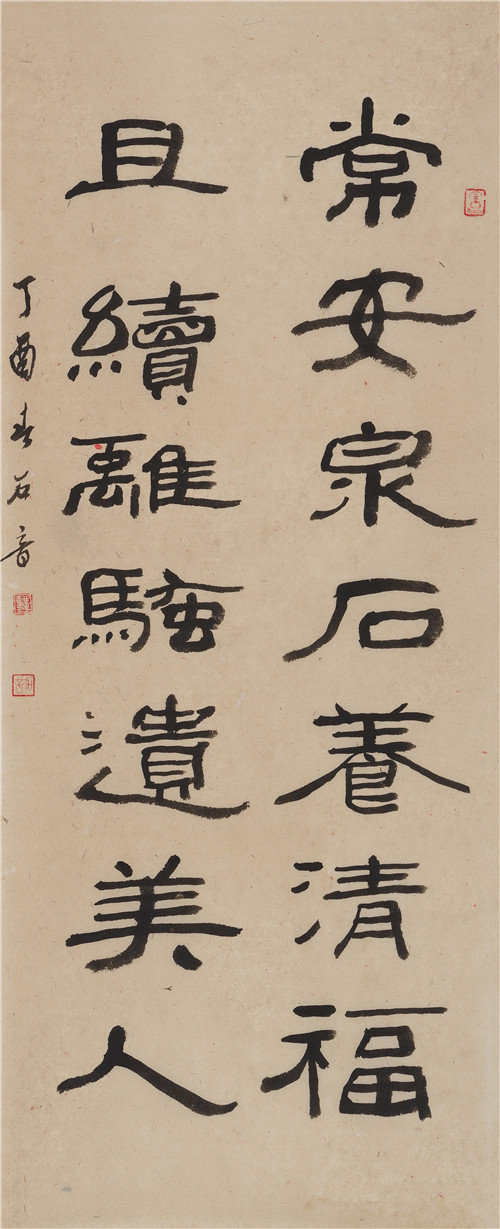 常安泉石養清福
且續離騷遺美人
丁酉春石音